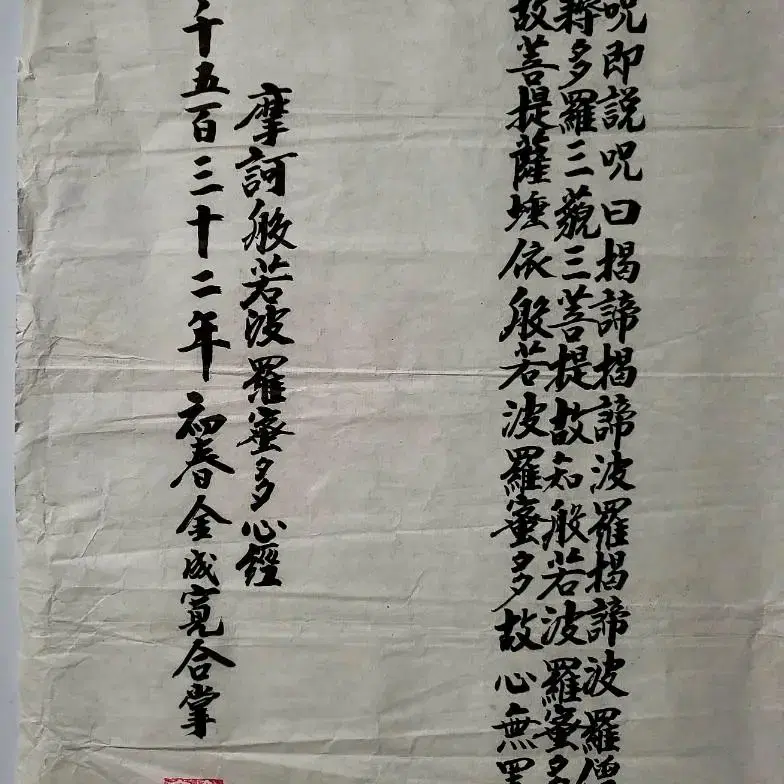 呪即説呪曰揭諦揭諦波羅揭諦波羅僧
耨多羅三藐三菩提故知般若波羅蜜多
故菩提薩埵依般若波羅蜜多故心無罣
摩訶般若波羅蜜多心經
千五百三十二年初春金成寬合掌